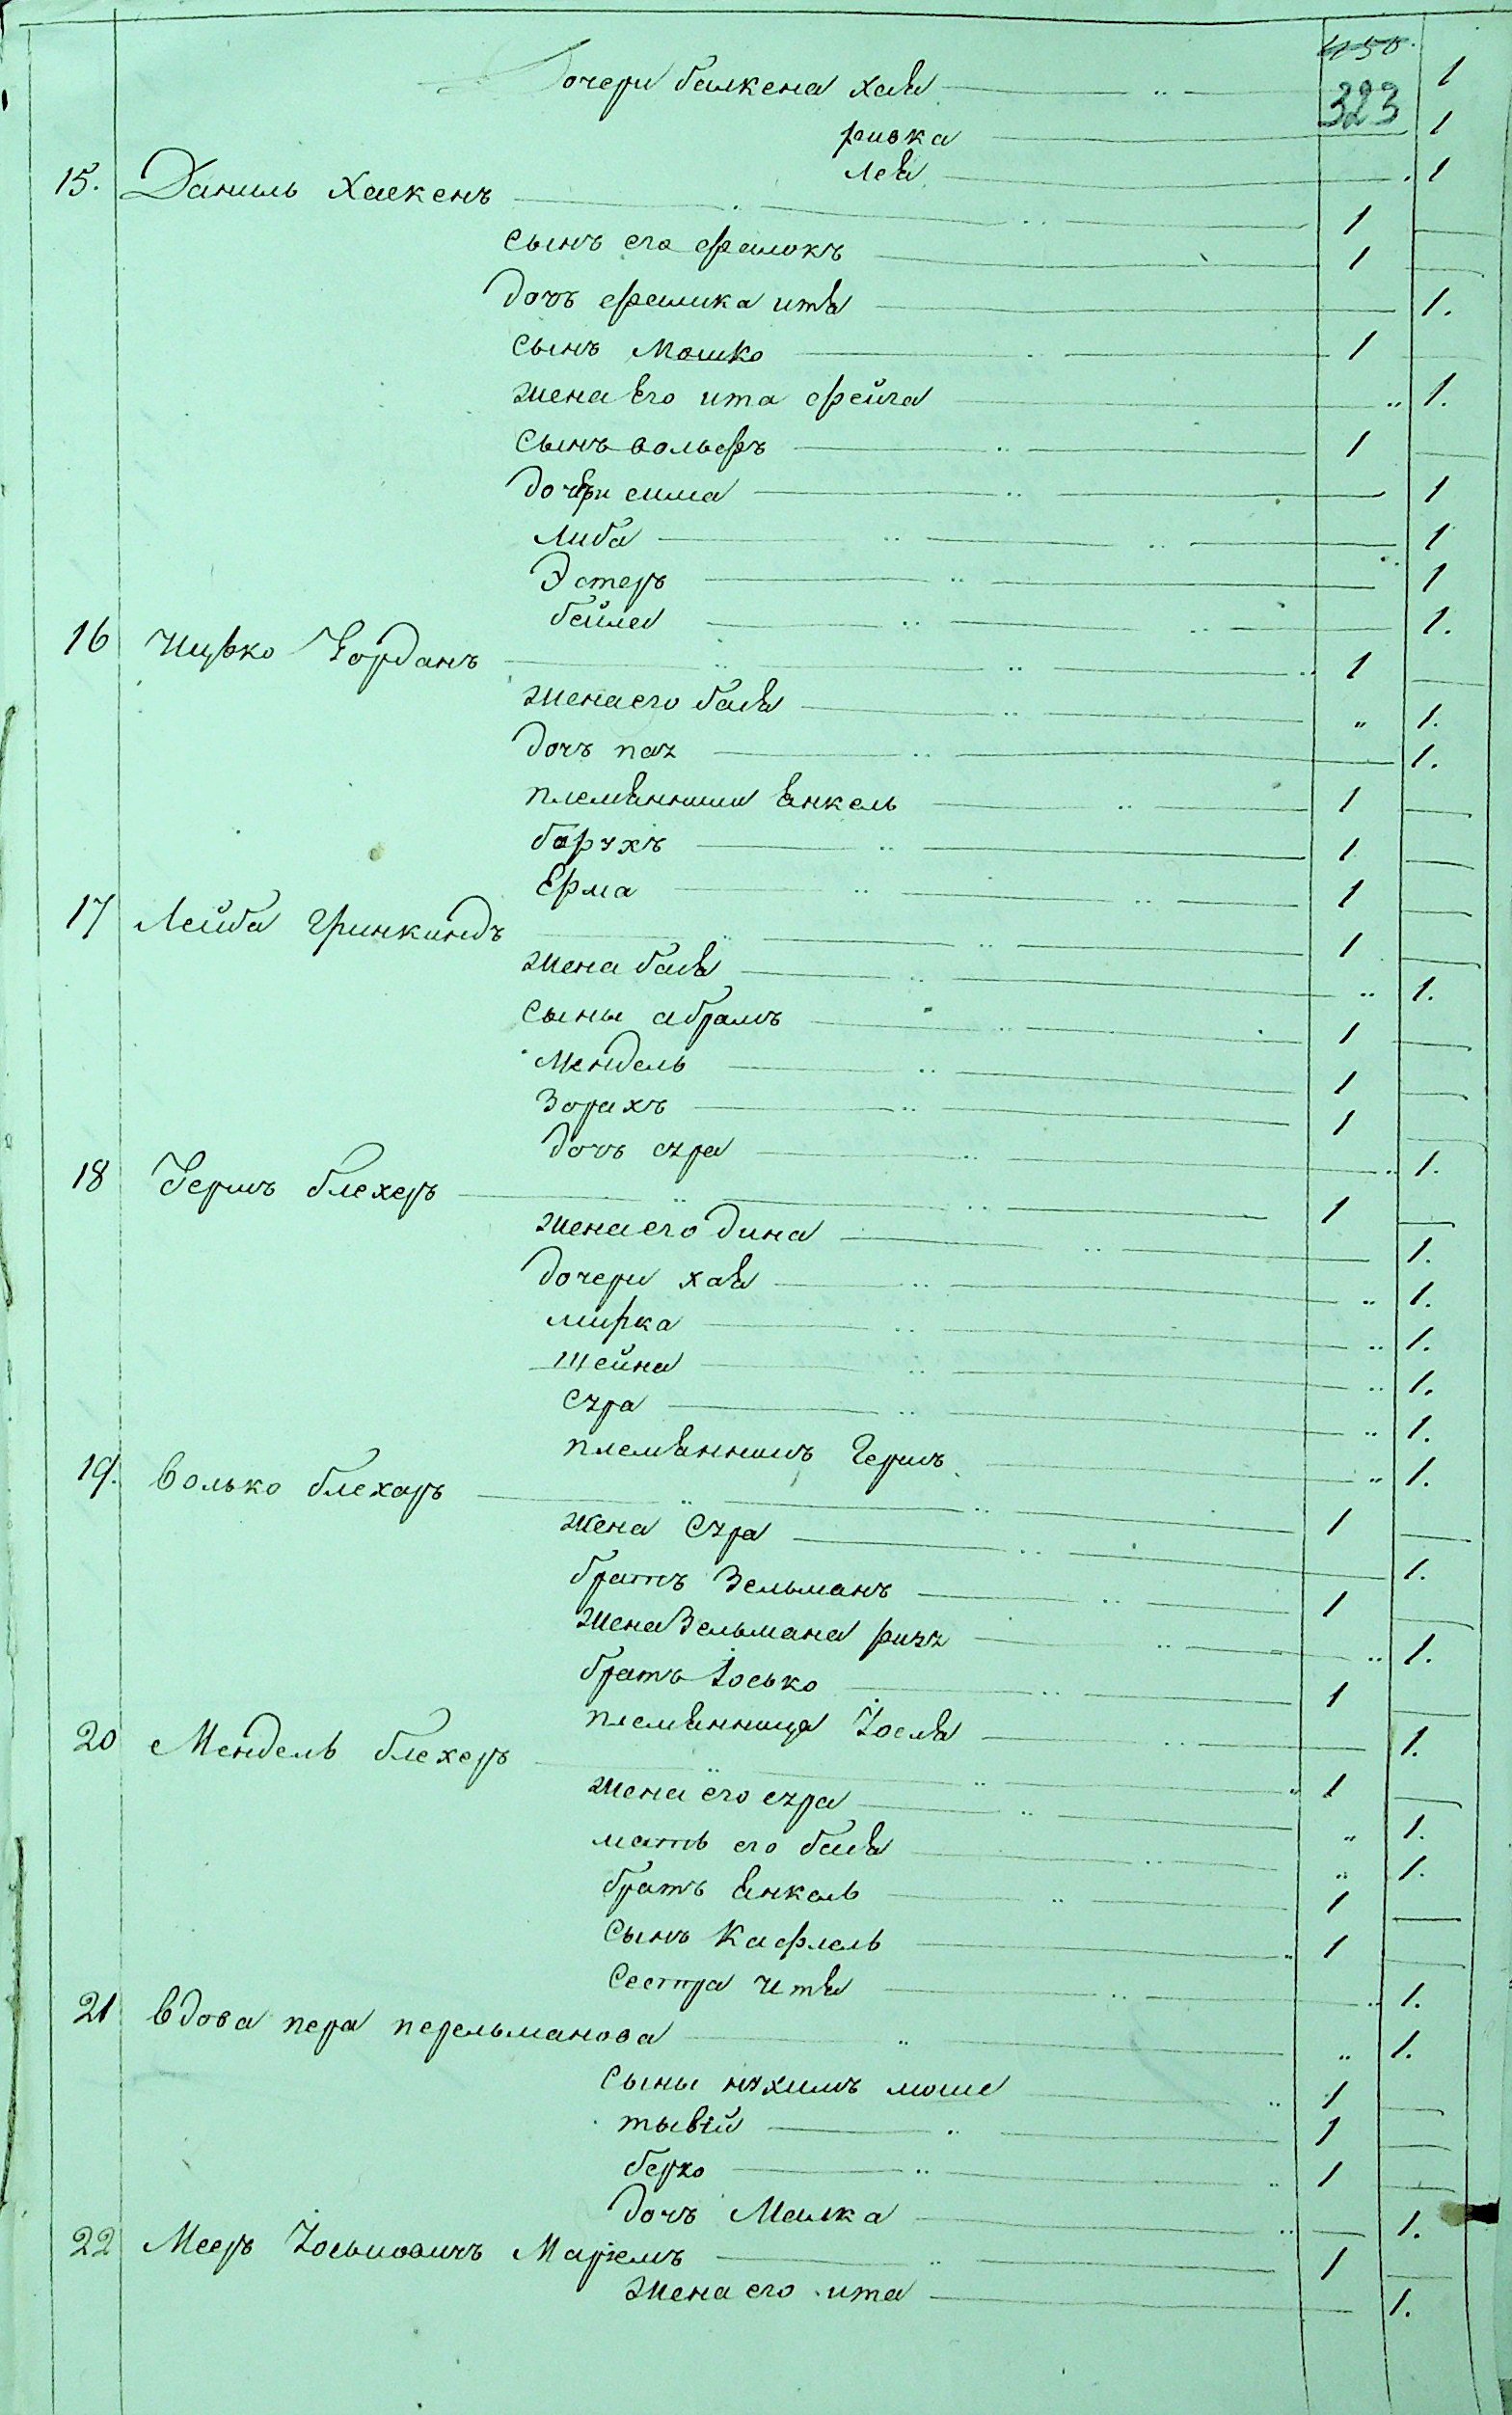 450
323
Дочери балкена хая 1
ривка 1
лея 1
15. Даниль Хаекенъ 1
сынъ его фалокъ 1
дочъ фалика итя 1.
сынъ Мошко 1
жена Его ита фейга 1.
сынъ вольфъ 1
дочери сима 1
Либа 1
Эстеръ 1
бейла 1.
16 Ицько Іорданъ 1
жена его бася 1.
дочъ паз 1.
племянники Янкель 1
борухъ 1
Ерма 1
17 Лейба Гринкиндъ 1
жена бася 1.
сыны абрамъ 1
Мендель 1
Зорахъ 1
дочъ сура 1.
18 Гершъ блехеръ 1
жена его дина 1.
дочери хая 1.
мирка 1.
шейна 1.
сура 1.
племянникъ Гершъ 1.
19. Волько блехаръ 1
жена Сура 1.
братъ Зельманъ 1
жена Зельмана 1.
братъ Іосько 1
племянница 1.
20 Мендель блехеръ 1
жена его сура 1.
мать его бася 1.
братъ Янкель 1
сынъ Кафлель 1
Сестра Итя 1.
21 Вдова пера перельманова 1.
сыны нухимъ моше 1
тывій 1
берко 1
дочъ Малка 1.
22 Меръ Іоськовичъ 1
жена его ита 1.